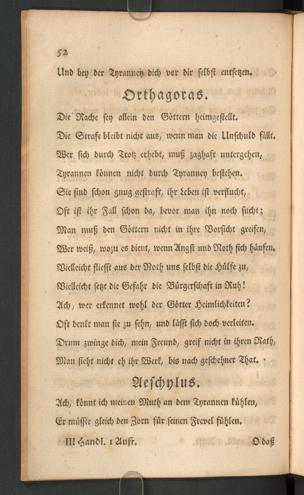 52
Und bey der Tyranney dich vor dir selbst entsetzen.
Orthagoras.
Die Rache sey allein den Göttern heimgestellt.
Die Strafe bleibt nicht aus, wenn man die Unschuld fällt.
Wer sich durch Trotz erhebt, muß zaghaft untergehen,
Tyrannen können nicht durch Tyranney bestehen.
Sie sind schon gnug gestraft, ihr Leben ist verflucht,
Oft ist ihr Fall schon da, bevor man ihn noch sucht;
Man muß den Göttern nicht in ihre Vorsicht greifen,
Wer weiß, wozu es dient, wenn Angst und Noth sich häufen.
Vielleicht fliesst aus der Noth uns selbst die Hülfe zu,
Vielleicht setzt die Gefahr die Bürgerschaft in Ruh!
Ach, wer erkennet wohl der Götter Heimlichkeiten?
Oft denkt man sie zu sehn, und lässt sich doch verleiten.
Drum zwinge dich, mein Freund, greif nicht in ihren Rath,
Man sieht nicht eh ihr Werk, bis nach geschehner That.
Aeschylus.
Ach, könnt ich meinen Muth an dem Tyrannen kühlen,
Er müsste gleich den Zorn für seinen Frevel fühlen.
III Handl. 1 Auftr. O daß